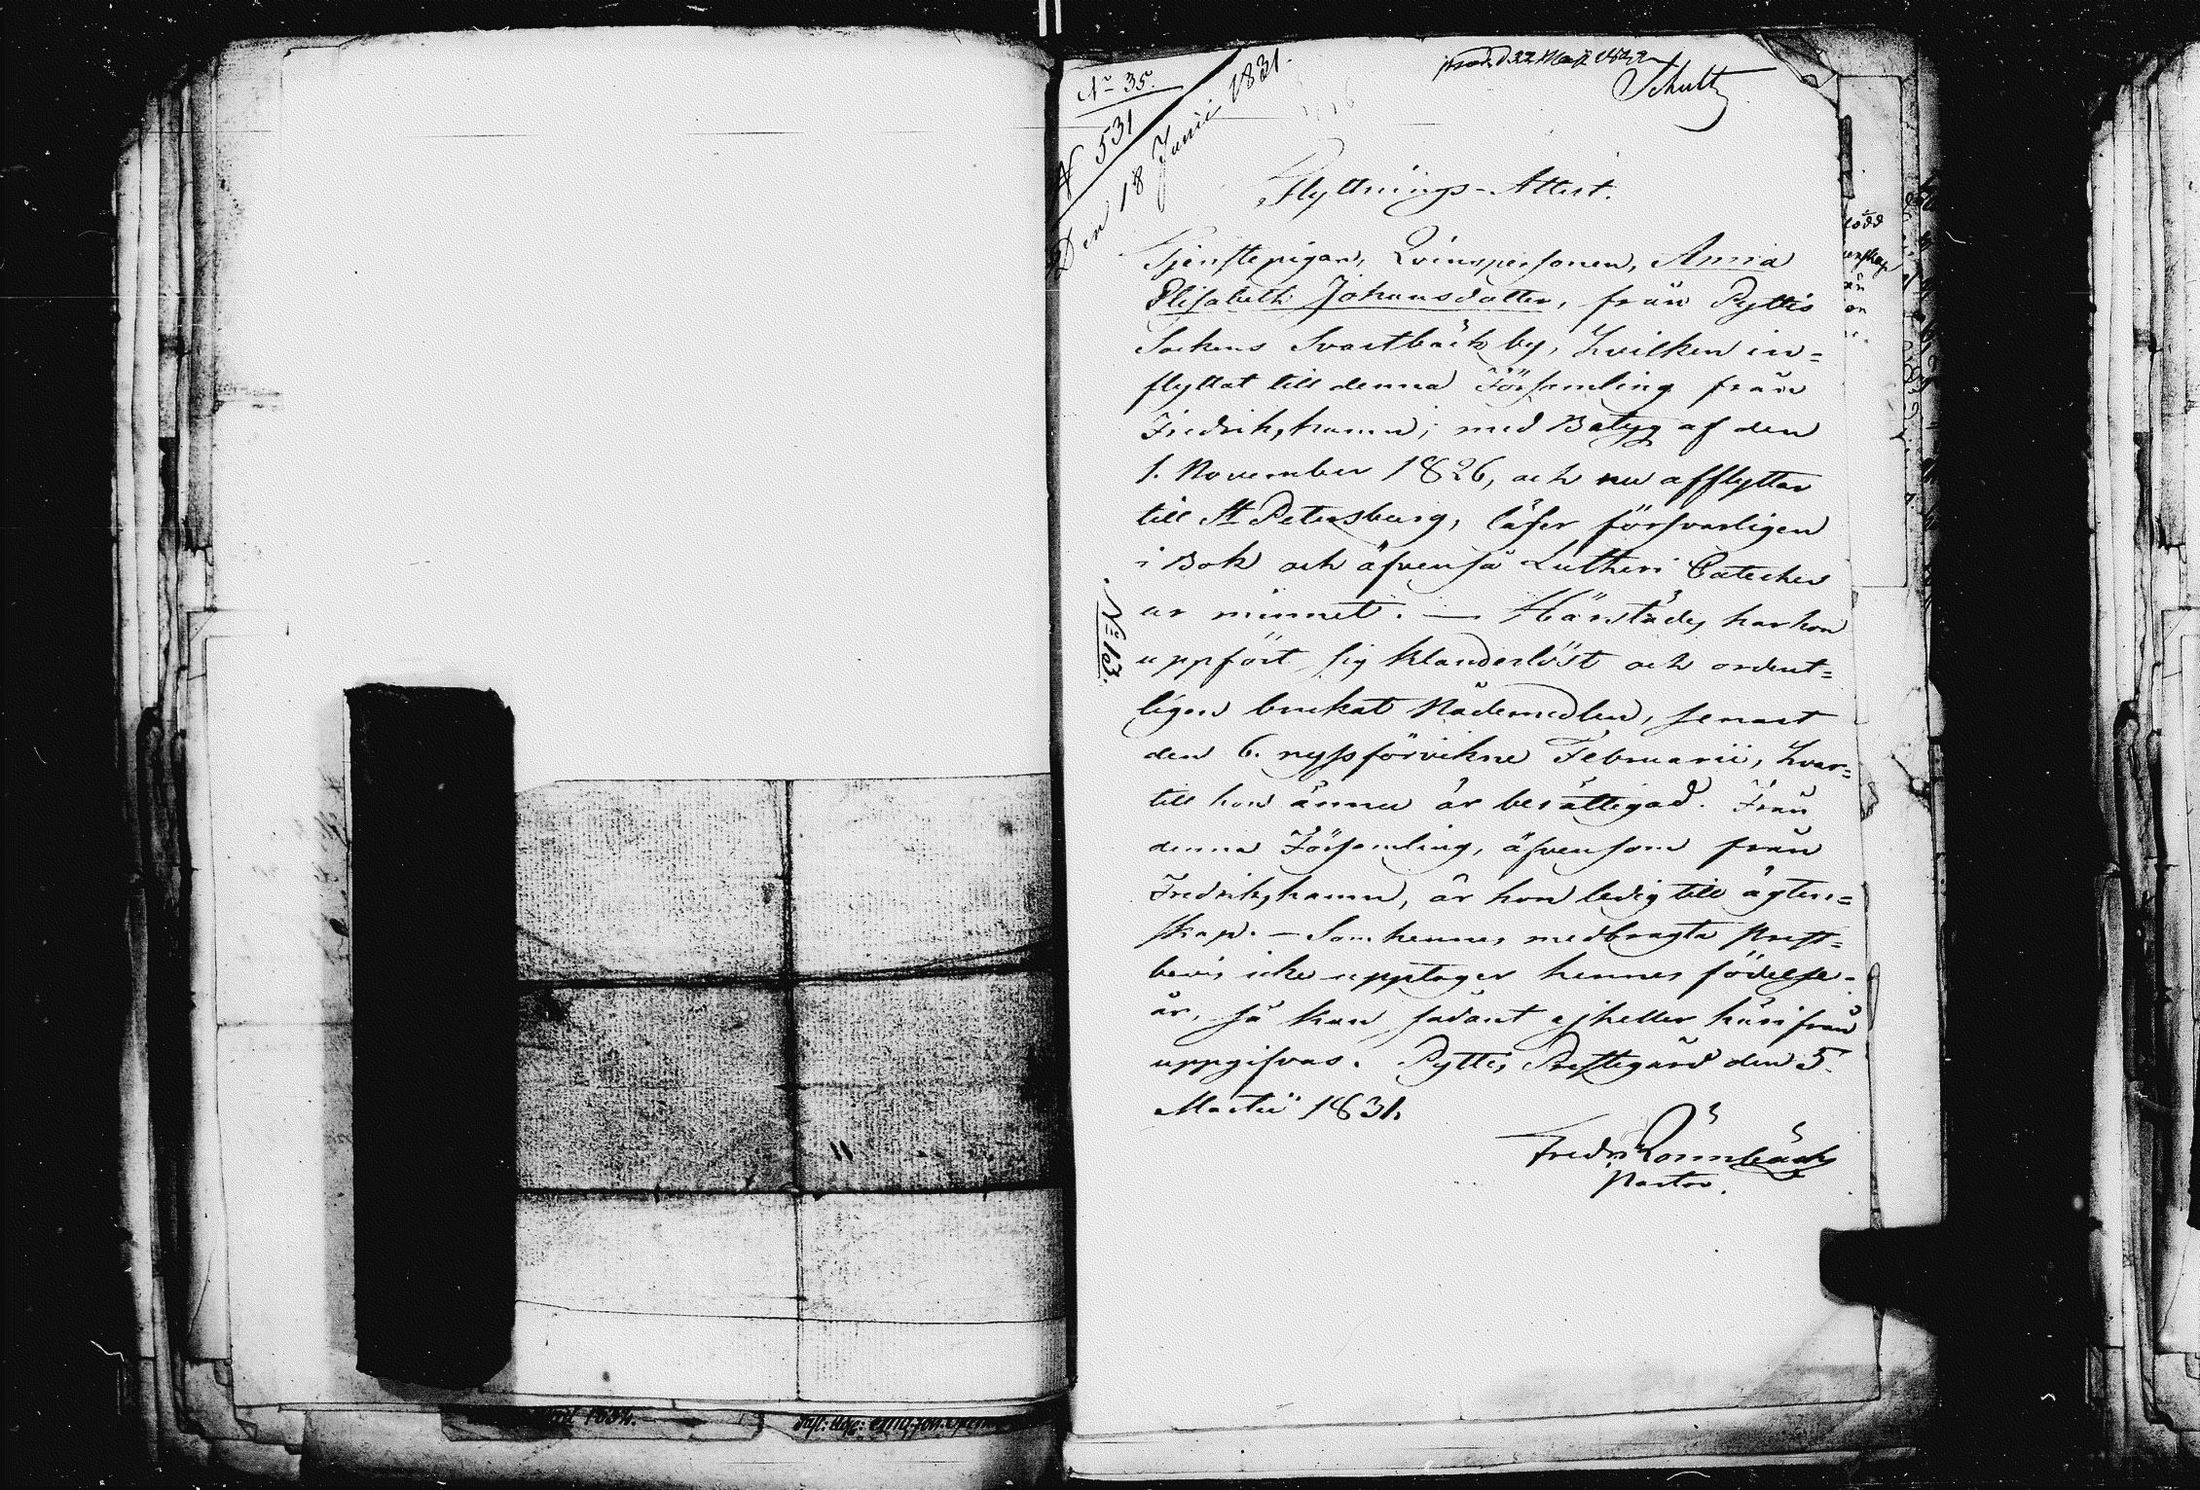 No 35.
N 531
Den 18 Junii 1831.
Schultz
Flyttnings-Attest.
Tjenstepigan, Qvinspersonen, Anna
Elisabeth Johansdotter, från Pyttis
Sockens Svartbäck by, hvilken in=
flyttat till denna Församling från
Fredrikshamn, med Betyg af den
1. November 1826, och nu afflyttar
till St Petersburg, läser försvarligen
i Bok och äfvenså Lutheri Cateches
ur minnet. — Härstädes har hon
uppfört sig klanderlöst och ordent=
ligen brukat Nådemedlen, senast
den 6. nyssförvikne Februarii, hvar=
till hon ännu är berättigad. Från
denna Församling, äfvensom från
Fredrikshamn, är hon ledig till ägten=
skap. — Som hennes medbragta Prest=
bevis icke upptager hennes födelse-
år, så kan sådant ej heller härifrån
uppgifvas. Pyttis Prestegård den 5.
Martii 1831.
Fredr Rönnbäck
Pastor.
No 13.